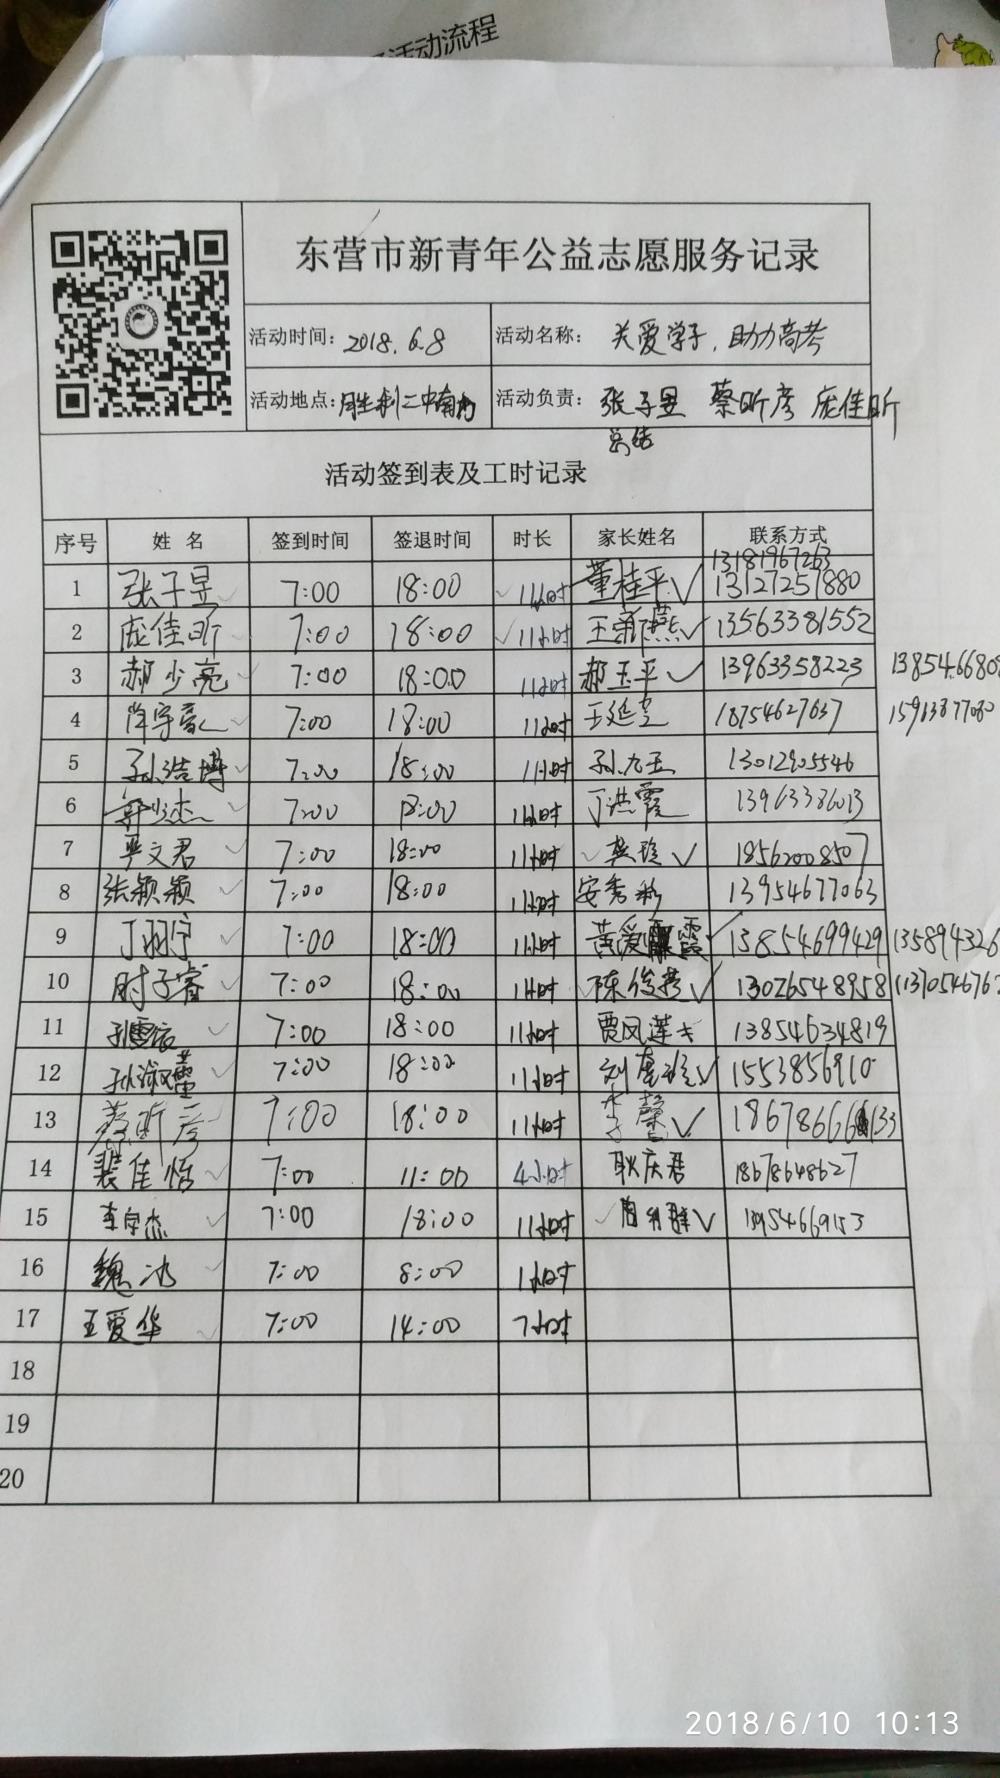 活动流程
东营市新青年公益志愿服务记录
活动时间: 2018.6.8 活动名称: 关爱学子,助力高考
活动地点: 胜利二中南 活动负责: 张子昱 蔡昕彦 庞佳昕
总结
活动签到表及工时记录
序号 姓 名 签到时间 签退时间 时长 家长姓名 联系方式
13181967263
1 张子昱 ✓ 7:00 18:00 ✓ 11小时 董桂平 ✓ 13127257880
2 庞佳昕 ✓ 7:00 18:00 ✓ 11小时 王新燕 ✓ 13563381552
3 郝少亮 ✓ 7:00 18:00 11小时 郝玉平 ✓ 13963358223 1385466808
4 7:00 18:00 11小时 18754627637
5 孙浩博 ✓ 7:00 18:00 11小时 孙九玉 13012905546
6 郭少杰 ✓ 7:00 18:00 11小时 丁洪霞 13963386013
7 严文君 ✓ 7:00 18:00 11小时 ✓ ✓ 18562008507
8 张颖颖 ✓ 7:00 18:00 11小时 安秀彩 13954677063
9 丁羽宁 ✓ 7:00 18:00 11小时 黄爱霞 ✓ 13854699429 135894326
10 时子睿 ✓ 7:00 18:00 11小时 陈俊梦 ✓ 13026548958 (137054676
11 ✓ 7:00 18:00 11小时 贾凤莲 13854634819
12 孙淑蕾 ✓ 7:00 18:00 11小时 ✓ 15538569110
13 蔡昕彦 7:00 18:00 11小时 李馨 ✓
14 裴佳怡 ✓ 7:00 11:00 4小时 耿庆君 18678648627
15 李宇杰 ✓ 7:00 18:00 11小时 ✓ 周利群 ✓ 13954669153
16 魏冰 7:00 8:00 1小时
17 王爱华 ✓ 7:00 14:00 7小时
18
19
20
2018/6/10 10:13